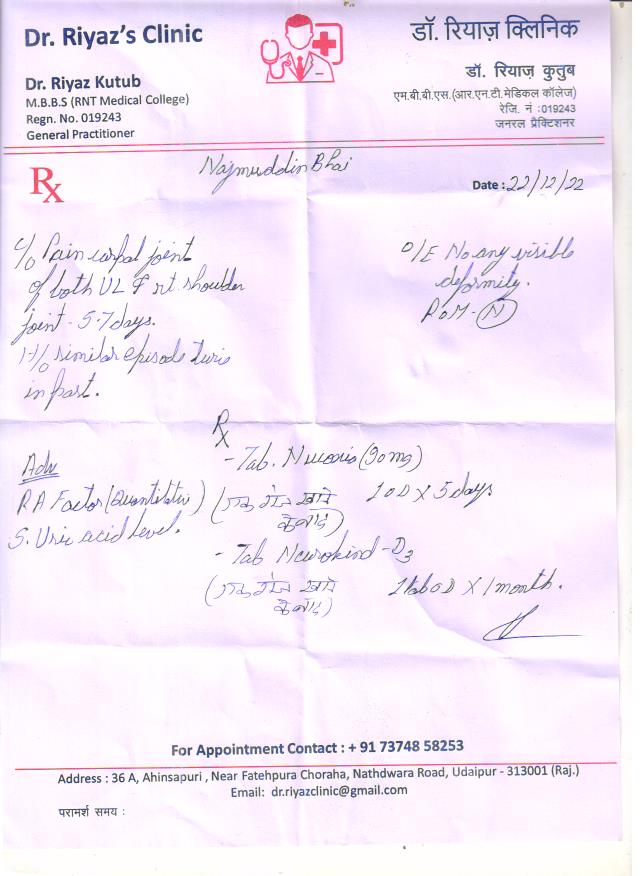 Dr. Riyaz's Clinic
डॉ. रियाज़ क्लिनिक
Dr. Riyaz Kutub
M.B.B.S (RNT Medical College)
Regn. No. 019243
General Practitioner
डॉ. रियाज़ कुतुब
एम.बी.बी.एस.(आर.एन.टी.मेडिकल कॉलेज)
रेजि. नं :019243
जनरल प्रैक्टिशनर
Rx
Najmuddin Bhai
Date : 22/12/22
C/o Pain carpal joint
of both UL & rt. shoulder
joint - 5-7 days.
H/o similar episode
in past.
O/E No any visible
deformity.
ROM - N
Rx
- Tab. (90mg)
1 OD X 5 days
(एक रोज खाने
के बाद)
Adv
RA Factor (Quantitative)
S. Uric acid level.
- Tab Neurokind - D3
1 tab OD X 1 month.
(एक रोज खाने
के बाद)
For Appointment Contact : + 91 73748 58253
Address : 36 A, Ahinsapuri , Near Fatehpura Choraha, Nathdwara Road, Udaipur - 313001 (Raj.)
Email: dr.riyazclinic@gmail.com
परामर्श समय :